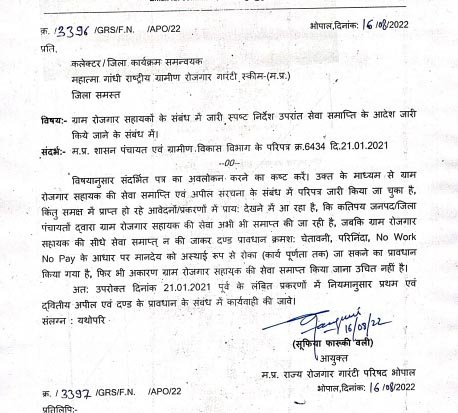 क्र. /3396 /GRS/F.N. /APO/22 भोपाल,दिनांक: 16/08/2022
प्रति,
कलेक्टर / जिला कार्यक्रम समन्वयक
महात्मा गांधी राष्ट्रीय ग्रामीण रोजगार गारंटी स्कीम-(म.प्र.)
जिला समस्त
विषय:- ग्राम रोजगार सहायकों के संबंध में जारी स्पष्ट निर्देश उपरांत सेवा समाप्ति के आदेश जारी
किये जाने के संबंध में।
संदर्भ:- म.प्र. शासन पंचायत एवं ग्रामीण विकास विभाग के परिपत्र क्र.6434 दि.21.01.2021
--00--
विषयानुसार संदर्भित पत्र का अवलोकन करने का कष्ट करें। उक्त के माध्यम से ग्राम
रोजगार सहायक की सेवा समाप्ति एवं अपील सरंचना के संबंध में परिपत्र जारी किया जा चुका है,
किंतु समक्ष में प्राप्त हो रहे आवेदनों/प्रकरणों में प्राय: देखने में आ रहा है, कि कतिपय जनपद/जिला
पंचायतों द्वारा ग्राम रोजगार सहायक की सेवा अभी भी समाप्त की जा रही है, जबकि ग्राम रोजगार
सहायक की सीधे सेवा समाप्त् न की जाकर दण्ड प्रावधान क्रमश: चेतावनी, परिनिंदा, No Work
No Pay के आधार पर मानदेय को अस्थाई रूप से रोका (कार्य पूर्णता तक) जा सकने का प्रावधान
किया गया है, फिर भी अकारण ग्राम रोजगार सहायक की सेवा समाप्त किया जाना उचित नहीं है।
अत: उपरोक्त दिनांक 21.01.2021 पूर्व के लंबित प्रकरणों में नियमानुसार प्रथम एवं
द्वितीय अपील एवं दण्ड के प्रावधान के संबंध में कार्यवाही की जावे।
संलग्न : यथोपरि
16/08/22
(सूफिया फारुकी वली)
आयुक्त
म.प्र. राज्य रोजगार गारंटी परिषद भोपाल
क्र. /3397 /GRS/F.N. /APO/22 भोपाल,दिनांक: 16/08/2022
प्रतिलिपि:-